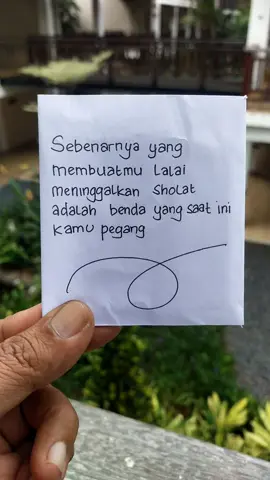 Sebenarnya yang
membuatmu lalai
meninggalkan sholat
adalah benda yang saat ini
kamu pegang